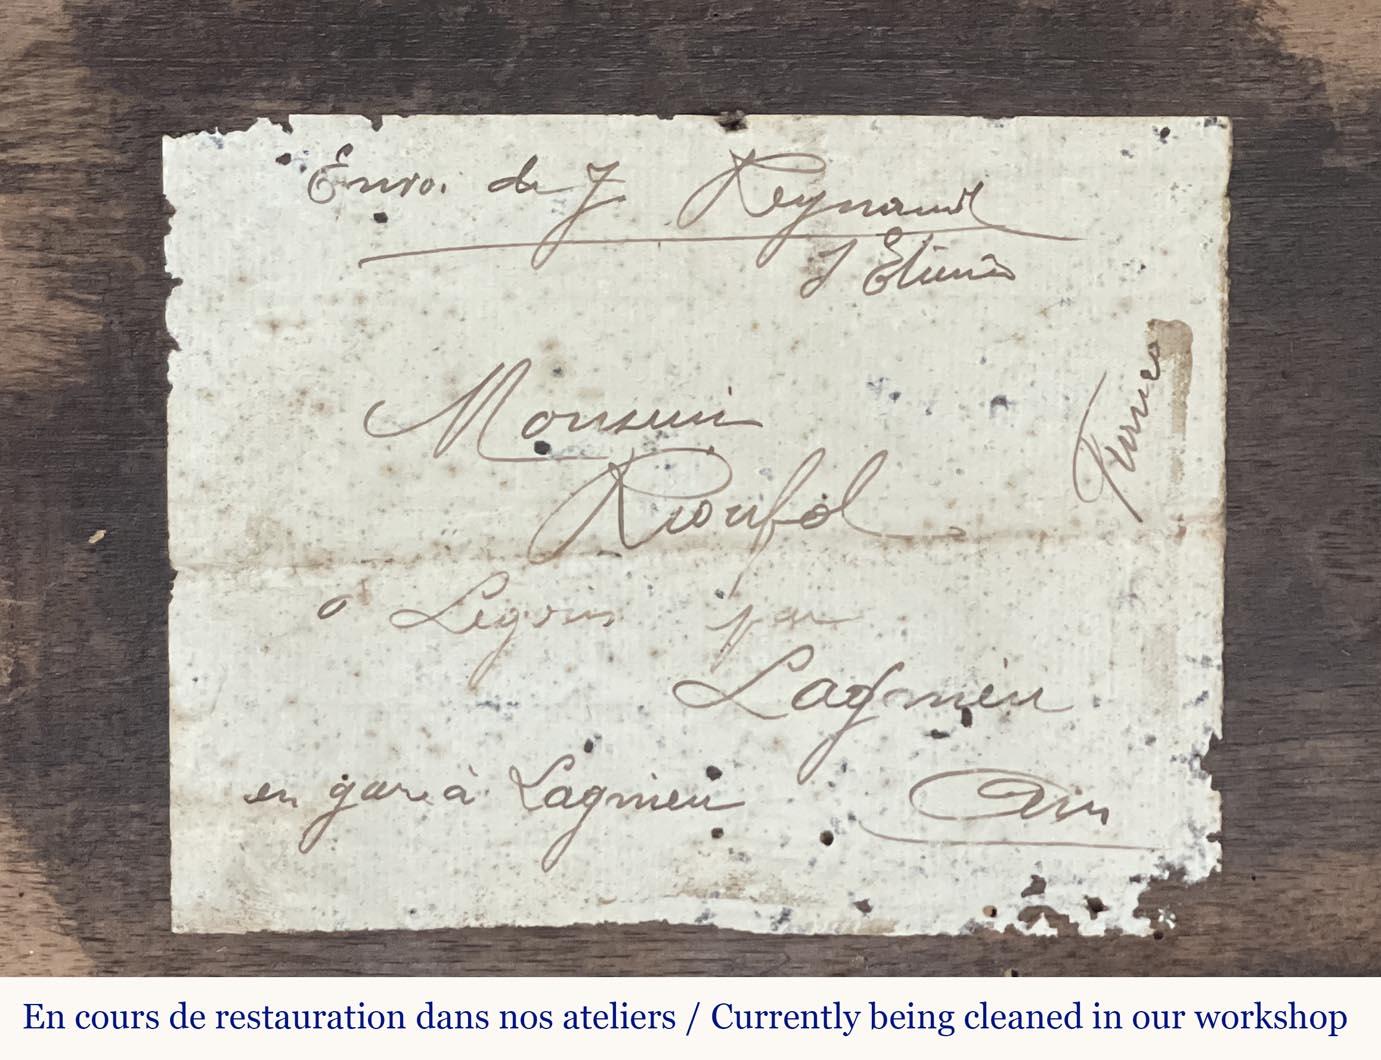 Envoi de J Reynaud
St Etienne
Monsieur
Rioufol
à Légora par
Lagnieu
en gare à Lagnieu Ain
En cours de restauration dans nos ateliers / Currently being cleaned in our workshop